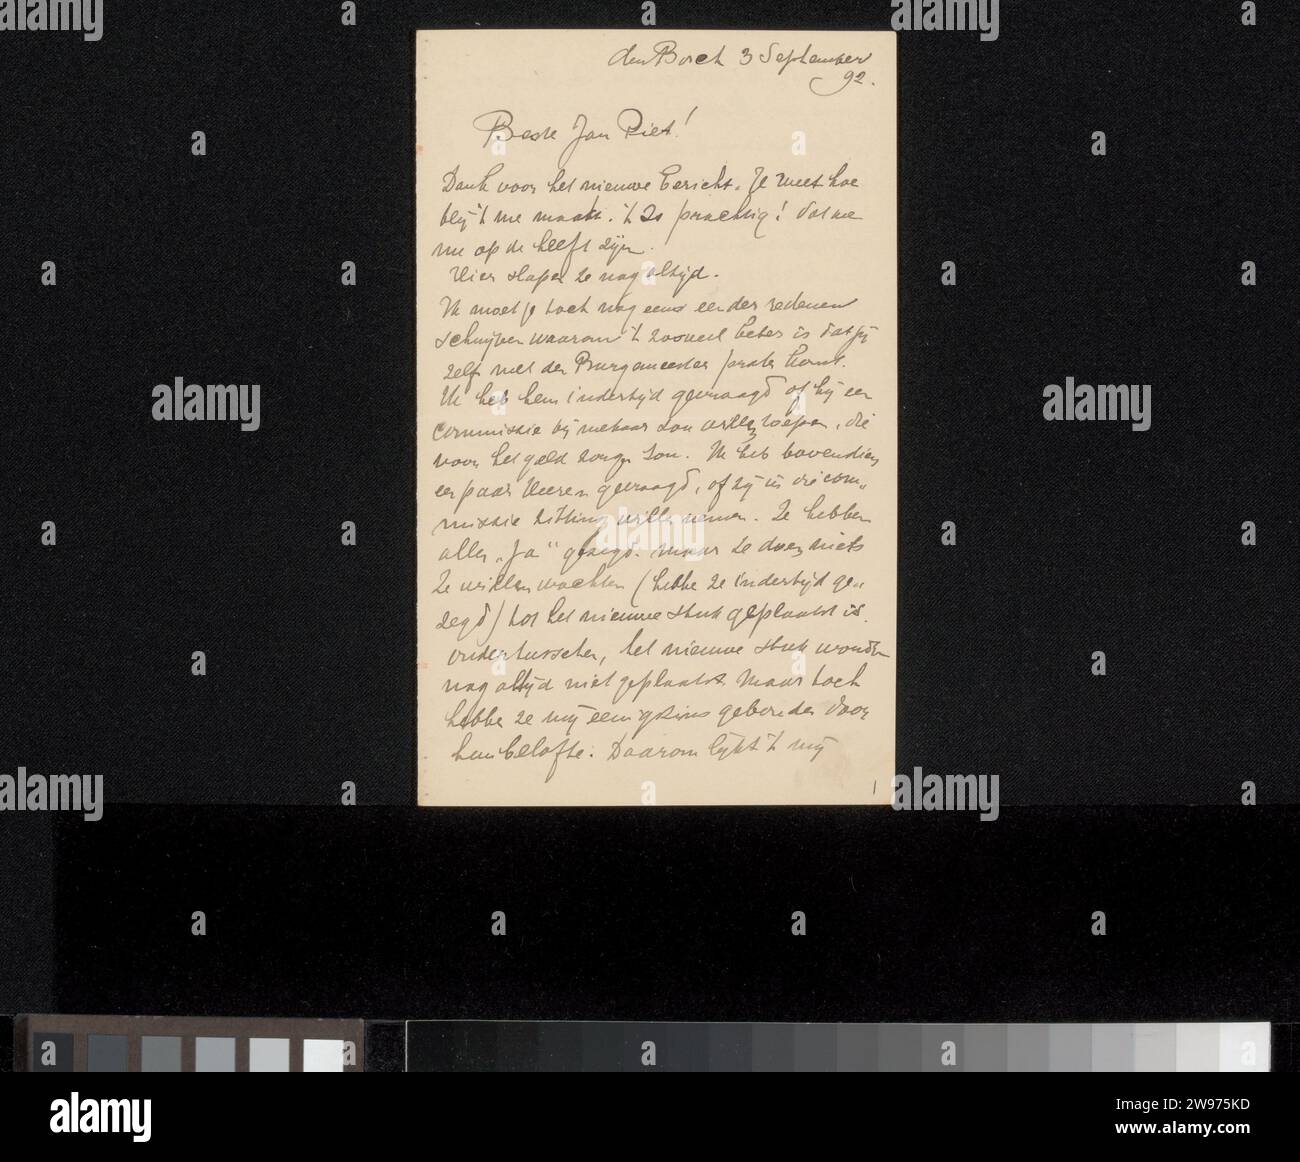 den Bosch 3 September
92.
Beste Jan Piet!
Dank voor het nieuwe bericht. Je weet hoe
blij 't me maakt. 't Is prachtig! dat we
nu op de helft zijn.
Hier slapen ze nog altijd.
Ik moet je toch nog eens een der redenen
schrijven waarom 't zooveel beter is dat jij
zelf met den Burgemeester praten komt.
Ik heb hem indertijd gevraagd of hij een
commissie bij mekaar zou willen roepen, die
voor het geld zorgen zou. Ik heb bovendien
een paar Heeren gevraagd, of zij in die com„
missie zitting willen nemen. Ze hebben
allen „Ja" gezegd. maar ze doen niets
Ze willen wachten (hebbe ze indertijd ge„
zegd) tot het nieuwe stuk geplaatst is.
ondertusschen, het nieuwe stuk
nog altijd niet geplaatst maar toch
hebbe ze mij eenigszins gebonden door
hun belofte. Daarom lijkt 't mij
1
alamy
alamy
alamy
alamy
alamy
Image ID: 2W975KD
www.alamy.com